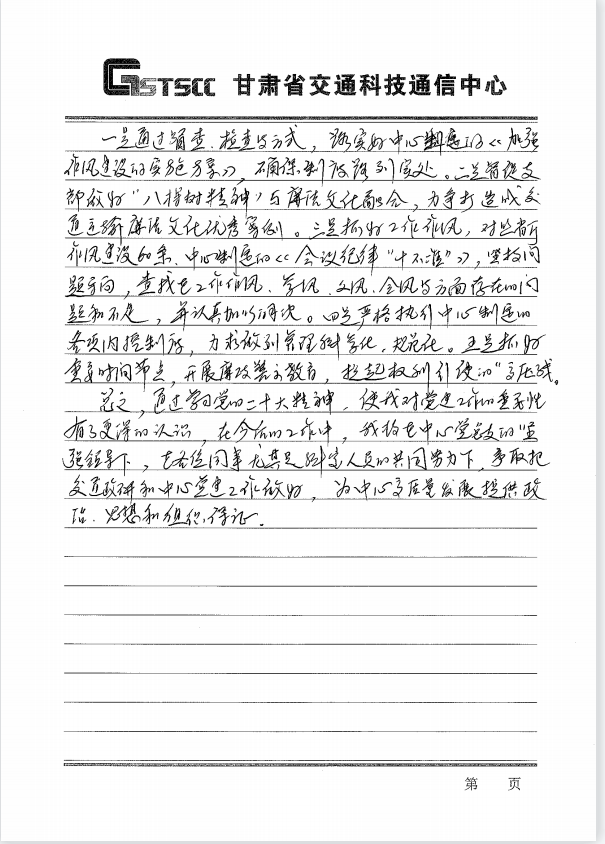 GSTSCC 甘肃省交通科技通信中心
一是通过调查、检查等方式，落实好中心制定的《加强
作风建设的实施方案》，确保制度落到实处。二是督促支
部做好“八棵树精神”与廉洁文化融合，力争打造成交
通运输廉洁文化优秀案例。三是抓好工作作风，对照省厅
作风建设60条、中心制定的《会议纪律“十不准”》，坚持问
题导向，查找在工作作风、学风、文风、会风等方面存在的问
题和不足，并认真加以解决。四是严格执行中心制定的
各项内控制度，力求做到管理科学化、规范化。五是抓好
重要时间节点，开展廉政警示教育，拉起权利行使的“高压线。
总之，通过学习党的二十大精神，使我对党建工作的重要性
有了更深的认识，在今后的工作中，我将在中心党总支的“坚
强领导下，在各位同事尤其是人员的共同努力下，争取把
交通政研和中心党建工作做好，为中心高质量发展提供政
治、思想和组织保证。
第 页